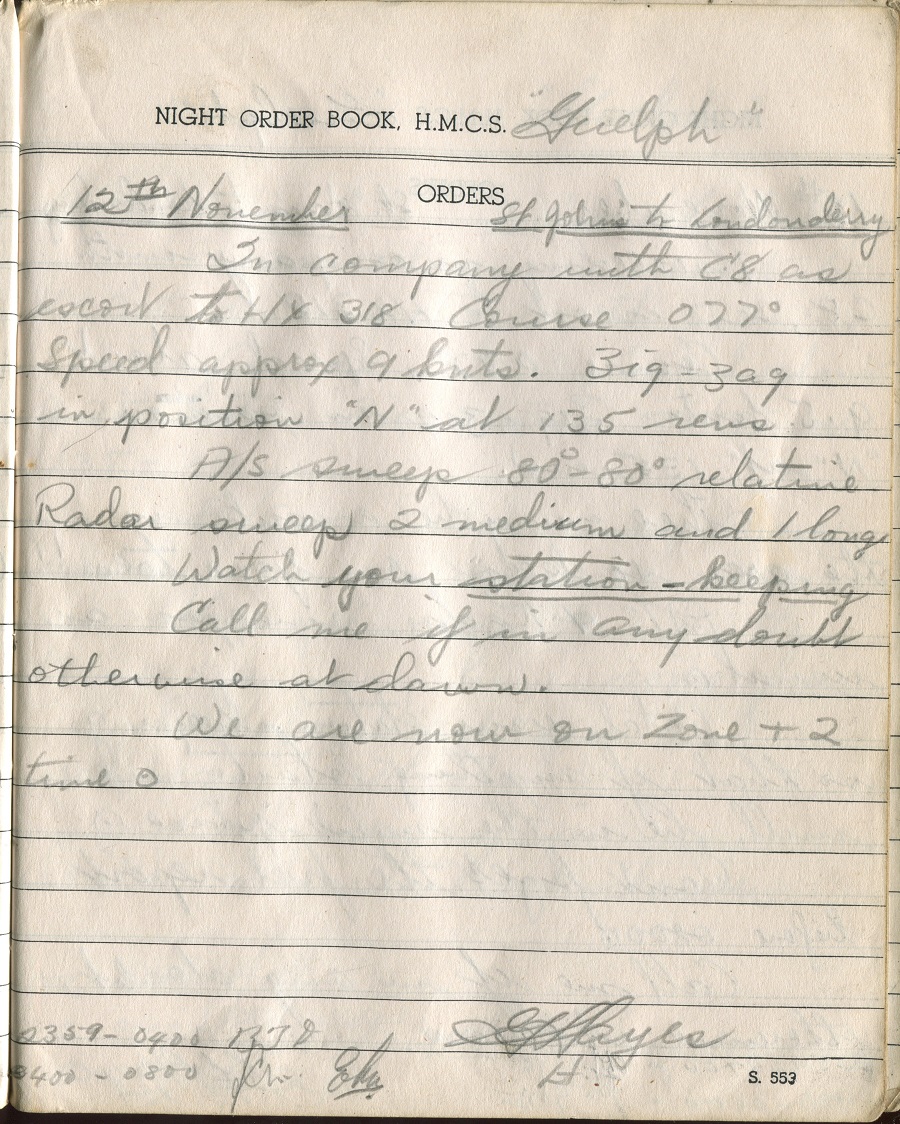 NIGHT ORDER BOOK, H.M.C.S. "Guelph"
ORDERS
12th November St John's to Londonderry
In company with C8 as
escort to HX 318. Course 077°
Speed approx 9 knts. Zig-zag
in position "N" at 135 revs
A/S sweep 80°-80° relative
Radar sweep 2 medium and 1 long
Watch your station-keeping
Call me if in any doubt
otherwise at dawn.
We are now on Zone + 2
time
2359-0400
0400-0800 Hayes
S. 553